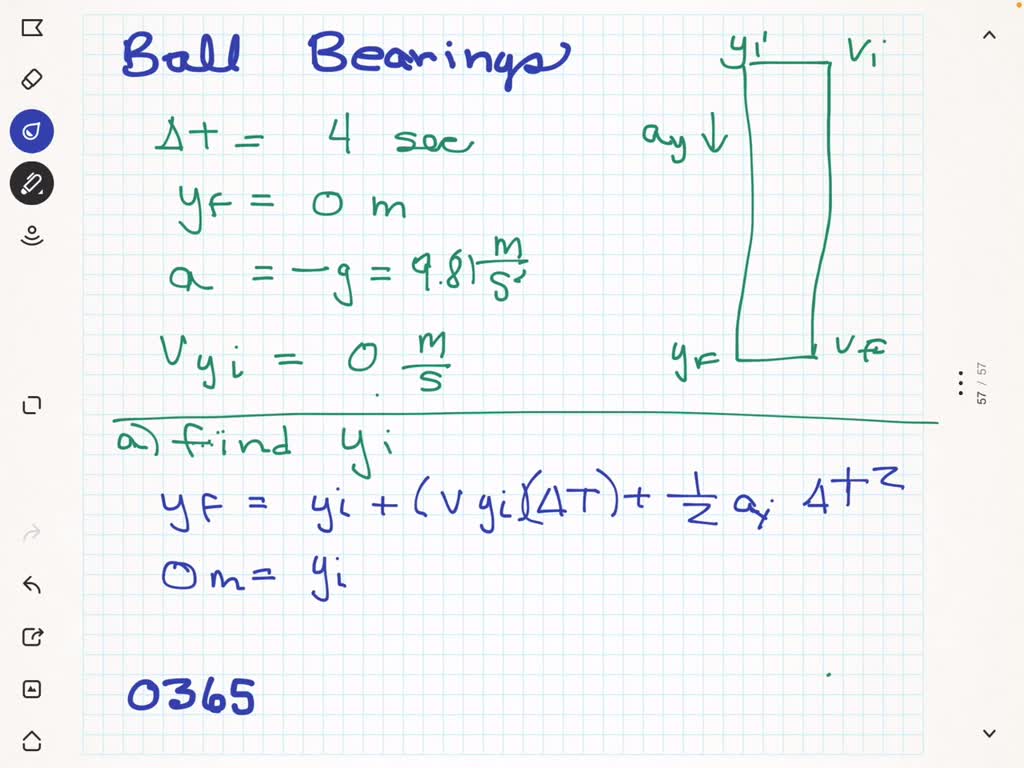 Ball Bearings
yi Vi
Δt = 4 sec
ay ↓
yF = 0 m
a = -g = 9.81 m/s²
Vyi = 0 m/s
yF VF
a) find yi
yF = yi + (Vyi)(ΔT) + 1/2 ay Δt²
0 m = yi
0365
57 / 57